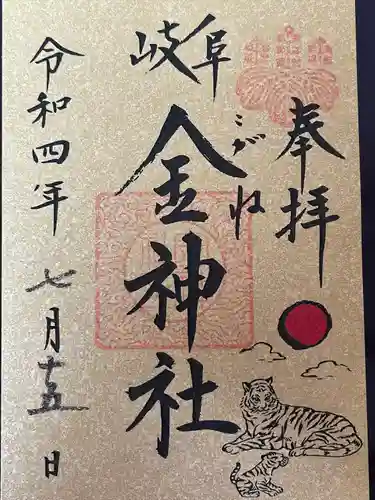 奉拝
岐阜
金神社
こがね
令和四年七月十五日